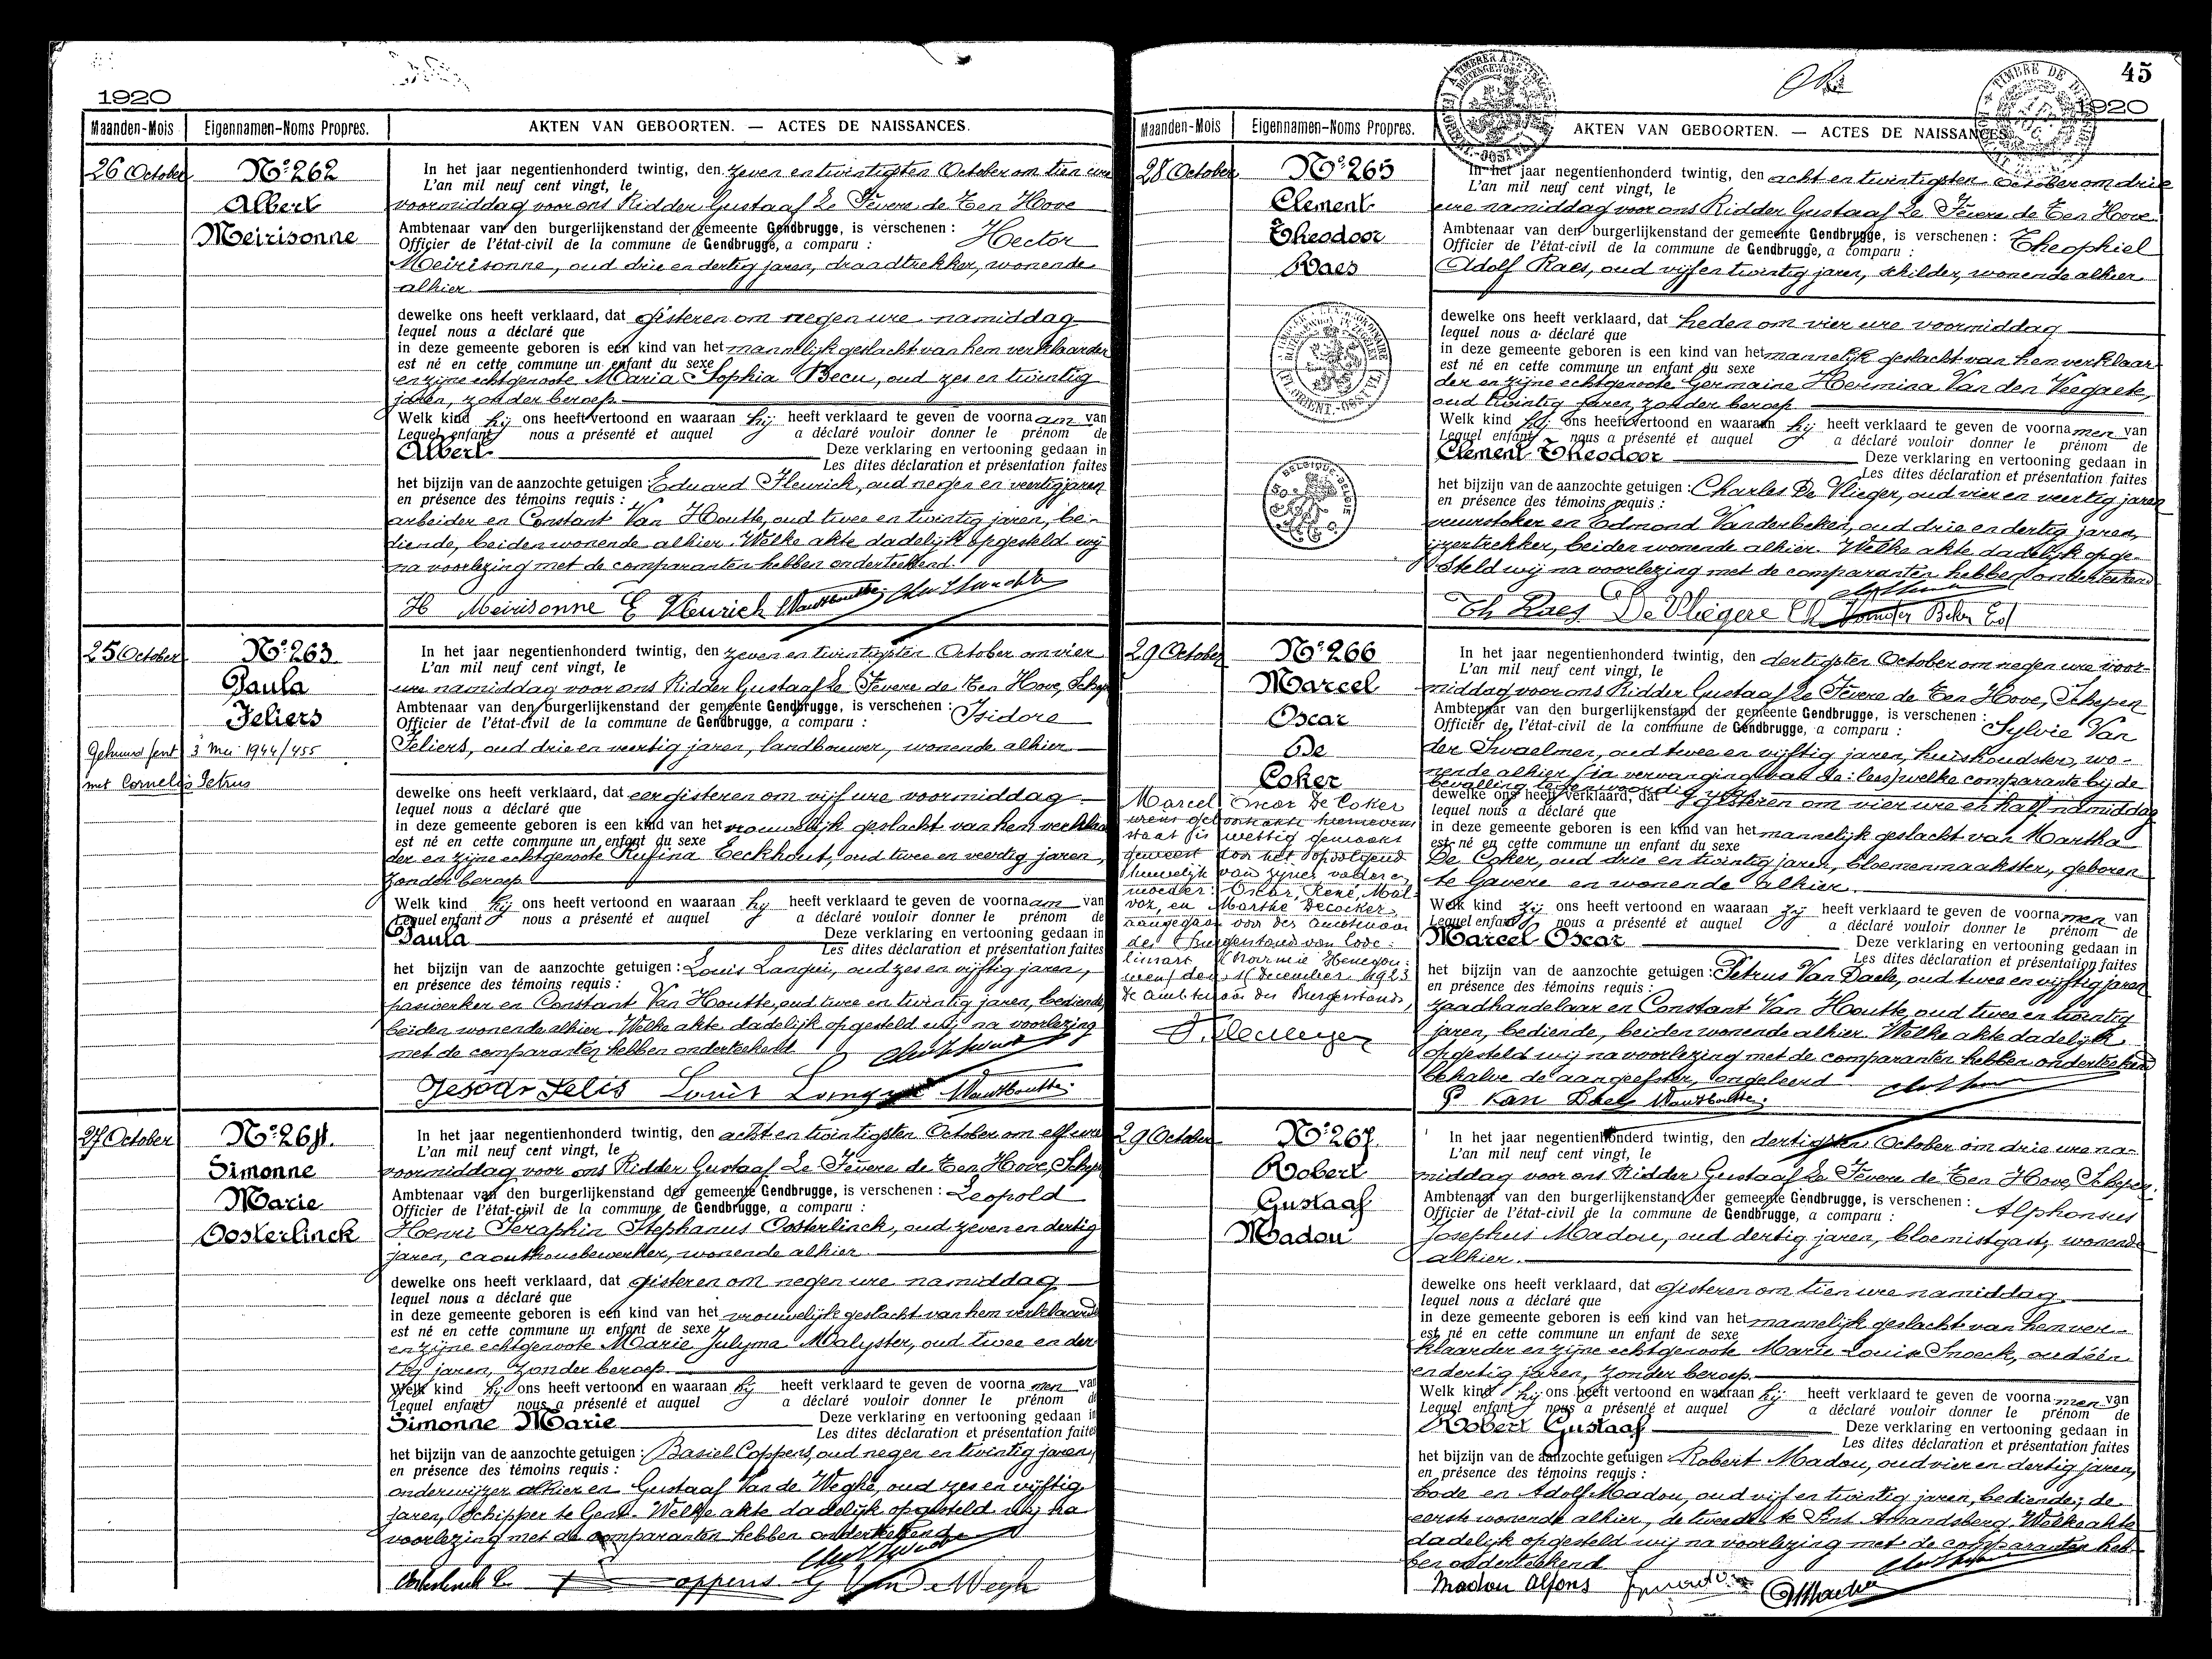 1920
Maanden-Mois Eigennamen-Noms Propres. AKTEN VAN GEBOORTEN. — ACTES DE NAISSANCES.
26 October
Nº 262
Albert
Meirisonne
In het jaar negentienhonderd twintig, den zeven en twintigsten October om tien ure
L'an mil neuf cent vingt, le
voormiddag voor ons Ridder Gustaaf Le Fevere de Ten Hove
Ambtenaar van den burgerlijkenstand der gemeente Gendbrugge, is verschenen : Hector
Officier de l'état-civil de la commune de Gendbrugge, a comparu :
Meirisonne, oud drie en dertig jaren, draadtrekker, wonende
alhier
dewelke ons heeft verklaard, dat gisteren om negen ure namiddag
lequel nous a déclaré que
in deze gemeente geboren is een kind van het mannelijk geslacht van hem verklaarder
est né en cette commune un enfant du sexe
en zijne echtgenoote Maria Sophia Becu, oud zes en twintig
jaren, zonder beroep
Welk kind hij ons heeft vertoond en waaraan hij heeft verklaard te geven de voornaam van
Lequel enfant nous a présenté et auquel a déclaré vouloir donner le prénom de
Albert Deze verklaring en vertooning gedaan in
Les dites déclaration et présentation faites
het bijzijn van de aanzochte getuigen : Eduard Fleurick, oud negen en veertig jaren
en présence des témoins requis :
arbeider en Constant Van Houtte, oud twee en twintig jaren, be-
diende, beiden wonende alhier. Welke akte dadelijk opgesteld wij
na voorlezing met de comparanten hebben onderteekend.
H Meirisonne E Vleurick VanHoutte
25 October
Nº 263
Paula
Feliers
Gehuwd Gent 3 Mei 1944/455
met Cornelis Petrus
In het jaar negentienhonderd twintig, den zeven en twintigsten October om vier
L'an mil neuf cent vingt, le
ure namiddag voor ons Ridder Gustaaf Le Fevere de Ten Hove, Schep
Ambtenaar van den burgerlijkenstand der gemeente Gendbrugge, is verschenen : Isidore
Officier de l'état-civil de la commune de Gendbrugge, a comparu :
Feliers, oud drie en veertig jaren, landbouwer, wonende alhier
dewelke ons heeft verklaard, dat eergisteren om vijf ure voormiddag
lequel nous a déclaré que
in deze gemeente geboren is een kind van het vrouwelijk geslacht van hem verklaa
est né en cette commune un enfant du sexe
der en zijne echtgenoote Rufina Eeckhout, oud twee en veertig jaren,
zonder beroep
Welk kind hij ons heeft vertoond en waaraan hij heeft verklaard te geven de voornaam van
Lequel enfant nous a présenté et auquel a déclaré vouloir donner le prénom de
Paula Deze verklaring en vertooning gedaan in
Les dites déclaration et présentation faites
het bijzijn van de aanzochte getuigen : Louis Langui, oud zes en vijftig jaren,
en présence des témoins requis :
paswerker en Constant Van Houtte, oud twee en twintig jaren, bediende
beiden wonende alhier. Welke akte dadelijk opgesteld wij na voorlezing
met de comparanten hebben onderteekend
Jesodr Felis Louis VanHoutte
27 October
Nº 264.
Simonne
Marie
Oosterlinck
In het jaar negentienhonderd twintig, den acht en twintigsten October om elf ure
L'an mil neuf cent vingt, le
voormiddag voor ons Ridder Gustaaf Le Fevere de Ten Hove, Schep
Ambtenaar van den burgerlijkenstand der gemeente Gendbrugge, is verschenen : Leopold
Officier de l'état-civil de la commune de Gendbrugge, a comparu :
Henri Seraphin Stephanus Oosterlinck, oud zeven en dertig
jaren, caoutchoucbewerker, wonende alhier.
dewelke ons heeft verklaard, dat gisteren om negen ure namiddag
lequel nous a déclaré que
in deze gemeente geboren is een kind van het vrouwelijk geslacht van hem verklaarder
est né en cette commune un enfant de sexe
en zijne echtgenoote Marie Julyma Malyster, oud twee en der
tig jaren, zonder beroep.
Welk kind hij ons heeft vertoond en waaraan hij heeft verklaard te geven de voornamen van
Lequel enfant nous a présenté et auquel a déclaré vouloir donner le prénom de
Simonne Marie Deze verklaring en vertooning gedaan in
Les dites déclaration et présentation faites
het bijzijn van de aanzochte getuigen : Basiel Coppens, oud negen en twintig jaren,
en présence des témoins requis :
onderwijzer alhier en Gustaaf Van de Weghe, oud zes en vijftig
jaren, schipper te Gent. Welke akte dadelijk opgesteld wij na
voorlezing met de comparanten hebben onderteekend.
oppens. G
45
1920
Maanden-Mois Eigennamen-Noms Propres. AKTEN VAN GEBOORTEN. — ACTES DE NAISSANCES
28 October
Nº 265
Clement
Theodoor
Raes
In het jaar negentienhonderd twintig, den acht en twintigsten October om drie
L'an mil neuf cent vingt, le
ure namiddag voor ons Ridder Gustaaf Le Fevere de Ten Hove
Ambtenaar van den burgerlijkenstand der gemeente Gendbrugge, is verschenen : Theophiel
Officier de l'état-civil de la commune de Gendbrugge, a comparu :
Adolf Raes, oud vijf en twintig jaren, schilder, wonende alhier
dewelke ons heeft verklaard, dat heden om vier ure voormiddag
lequel nous a déclaré que
in deze gemeente geboren is een kind van het mannelijk geslacht van hem verklaar-
est né en cette commune un enfant du sexe
der en zijne echtgenoote Germaine Hermina Van den Veegaete,
oud twintig jaren, zonder beroep
Welk kind hij ons heeft vertoond en waaraan hij heeft verklaard te geven de voornamen van
Lequel enfant nous a présenté et auquel a déclaré vouloir donner le prénom de
Clement Theodoor Deze verklaring en vertooning gedaan in
Les dites déclaration et présentation faites
het bijzijn van de aanzochte getuigen : Charles De Vlieger, oud vier en veertig jaren
en présence des témoins requis :
vuurstoker en Edmond Vanderbeken, oud drie en dertig jaren,
ijzertrekker, beiden wonende alhier. Welke akte dadelijk opge-
steld wij na voorlezing met de comparanten hebben onderteekend
Th Raes De Vliegere Ch Beken Ed
29 October
Nº 266
Marcel
Oscar
De
Coker
Marcel Oscar De Coker
wiens geboorteakte hiernevens
staat is wettig gemaakt
geweest door het opvolgend
huwelijk van zijnen vader en
moeder: Oscar, René, Mal-
vox, en Marthe Decocker,
aangegaan voor den ambtenaar
des Burgerstands van Lode-
linsart (Provincie Henegou-
wen) den 1 December 1923
De ambtenaar des Burgerstands,
In het jaar negentienhonderd twintig, den dertigsten October om negen ure voor-
L'an mil neuf cent vingt, le
middag voor ons Ridder Gustaaf Le Fevere de Ten Hove, Schepen
Ambtenaar van den burgerlijkenstand der gemeente Gendbrugge, is verschenen :
Officier de l'état-civil de la commune de Gendbrugge, a comparu : Sylvie Van
der Swaelmen, oud twee en vijftig jaren, huishoudster, wo-
nende alhier (in vervanging van de: lees) welke comparante bij de
bevalling tegenwoordig was
dewelke ons heeft verklaard, dat gisteren om vier ure en half namiddag
lequel nous a déclaré que
in deze gemeente geboren is een kind van het mannelijk geslacht van Martha
est né en cette commune un enfant du sexe
De Coker, oud drie en twintig jaren, bloemenmaakster, geboren
te Gavere en wonende alhier.
Welk kind zij ons heeft vertoond en waaraan zij heeft verklaard te geven de voornamen van
Lequel enfant nous a présenté et auquel a déclaré vouloir donner le prénom de
Marcel Oscar Deze verklaring en vertooning gedaan in
Les dites déclaration et présentation faites
het bijzijn van de aanzochte getuigen : Petrus Van Daele, oud twee en vijftig jaren
en présence des témoins requis :
zaadhandelaar en Constant Van Houtte, oud twee en twintig
jaren, bediende, beiden wonende alhier. Welke akte dadelijk
opgesteld wij na voorlezing met de comparanten hebben onderteekend
behalve de aangeefster, ongeleerd
P Van Daele VanHoutte
29 October
Nº 267.
Robert
Gustaaf
Madou
In het jaar negentienhonderd twintig, den dertigsten October om drie ure na-
L'an mil neuf cent vingt, le
middag voor ons Ridder Gustaaf Le Fevere de Ten Hove, Schepen,
Ambtenaar van den burgerlijkenstand der gemeente Gendbrugge, is verschenen :
Officier de l'état-civil de la commune de Gendbrugge, a comparu : Alphonsus
Josephus Madou, oud dertig jaren, bloemistgast, wonende
alhier.
dewelke ons heeft verklaard, dat gisteren om tien ure namiddag
lequel nous a déclaré que
in deze gemeente geboren is een kind van het mannelijk geslacht van hem ver-
est né en cette commune un enfant de sexe
klaarder en zijne echtgenoote Marie Louise Snoeck, oud één
en dertig jaren, zonder beroep.
Welk kind hij ons heeft vertoond en waaraan hij heeft verklaard te geven de voornamen van
Lequel enfant nous a présenté et auquel a déclaré vouloir donner le prénom de
Robert Gustaaf Deze verklaring en vertooning gedaan in
Les dites déclaration et présentation faites
het bijzijn van de aanzochte getuigen : Robert Madou, oud vier en dertig jaren,
en présence des témoins requis :
bode en Adolf Madou, oud vijf en twintig jaren, bediende; de
eerste wonende alhier, de tweede te Sint Amandsberg. Welke akte
dadelijk opgesteld wij na voorlezing met de comparanten heb-
ben onderteekend.
Madou Alfons